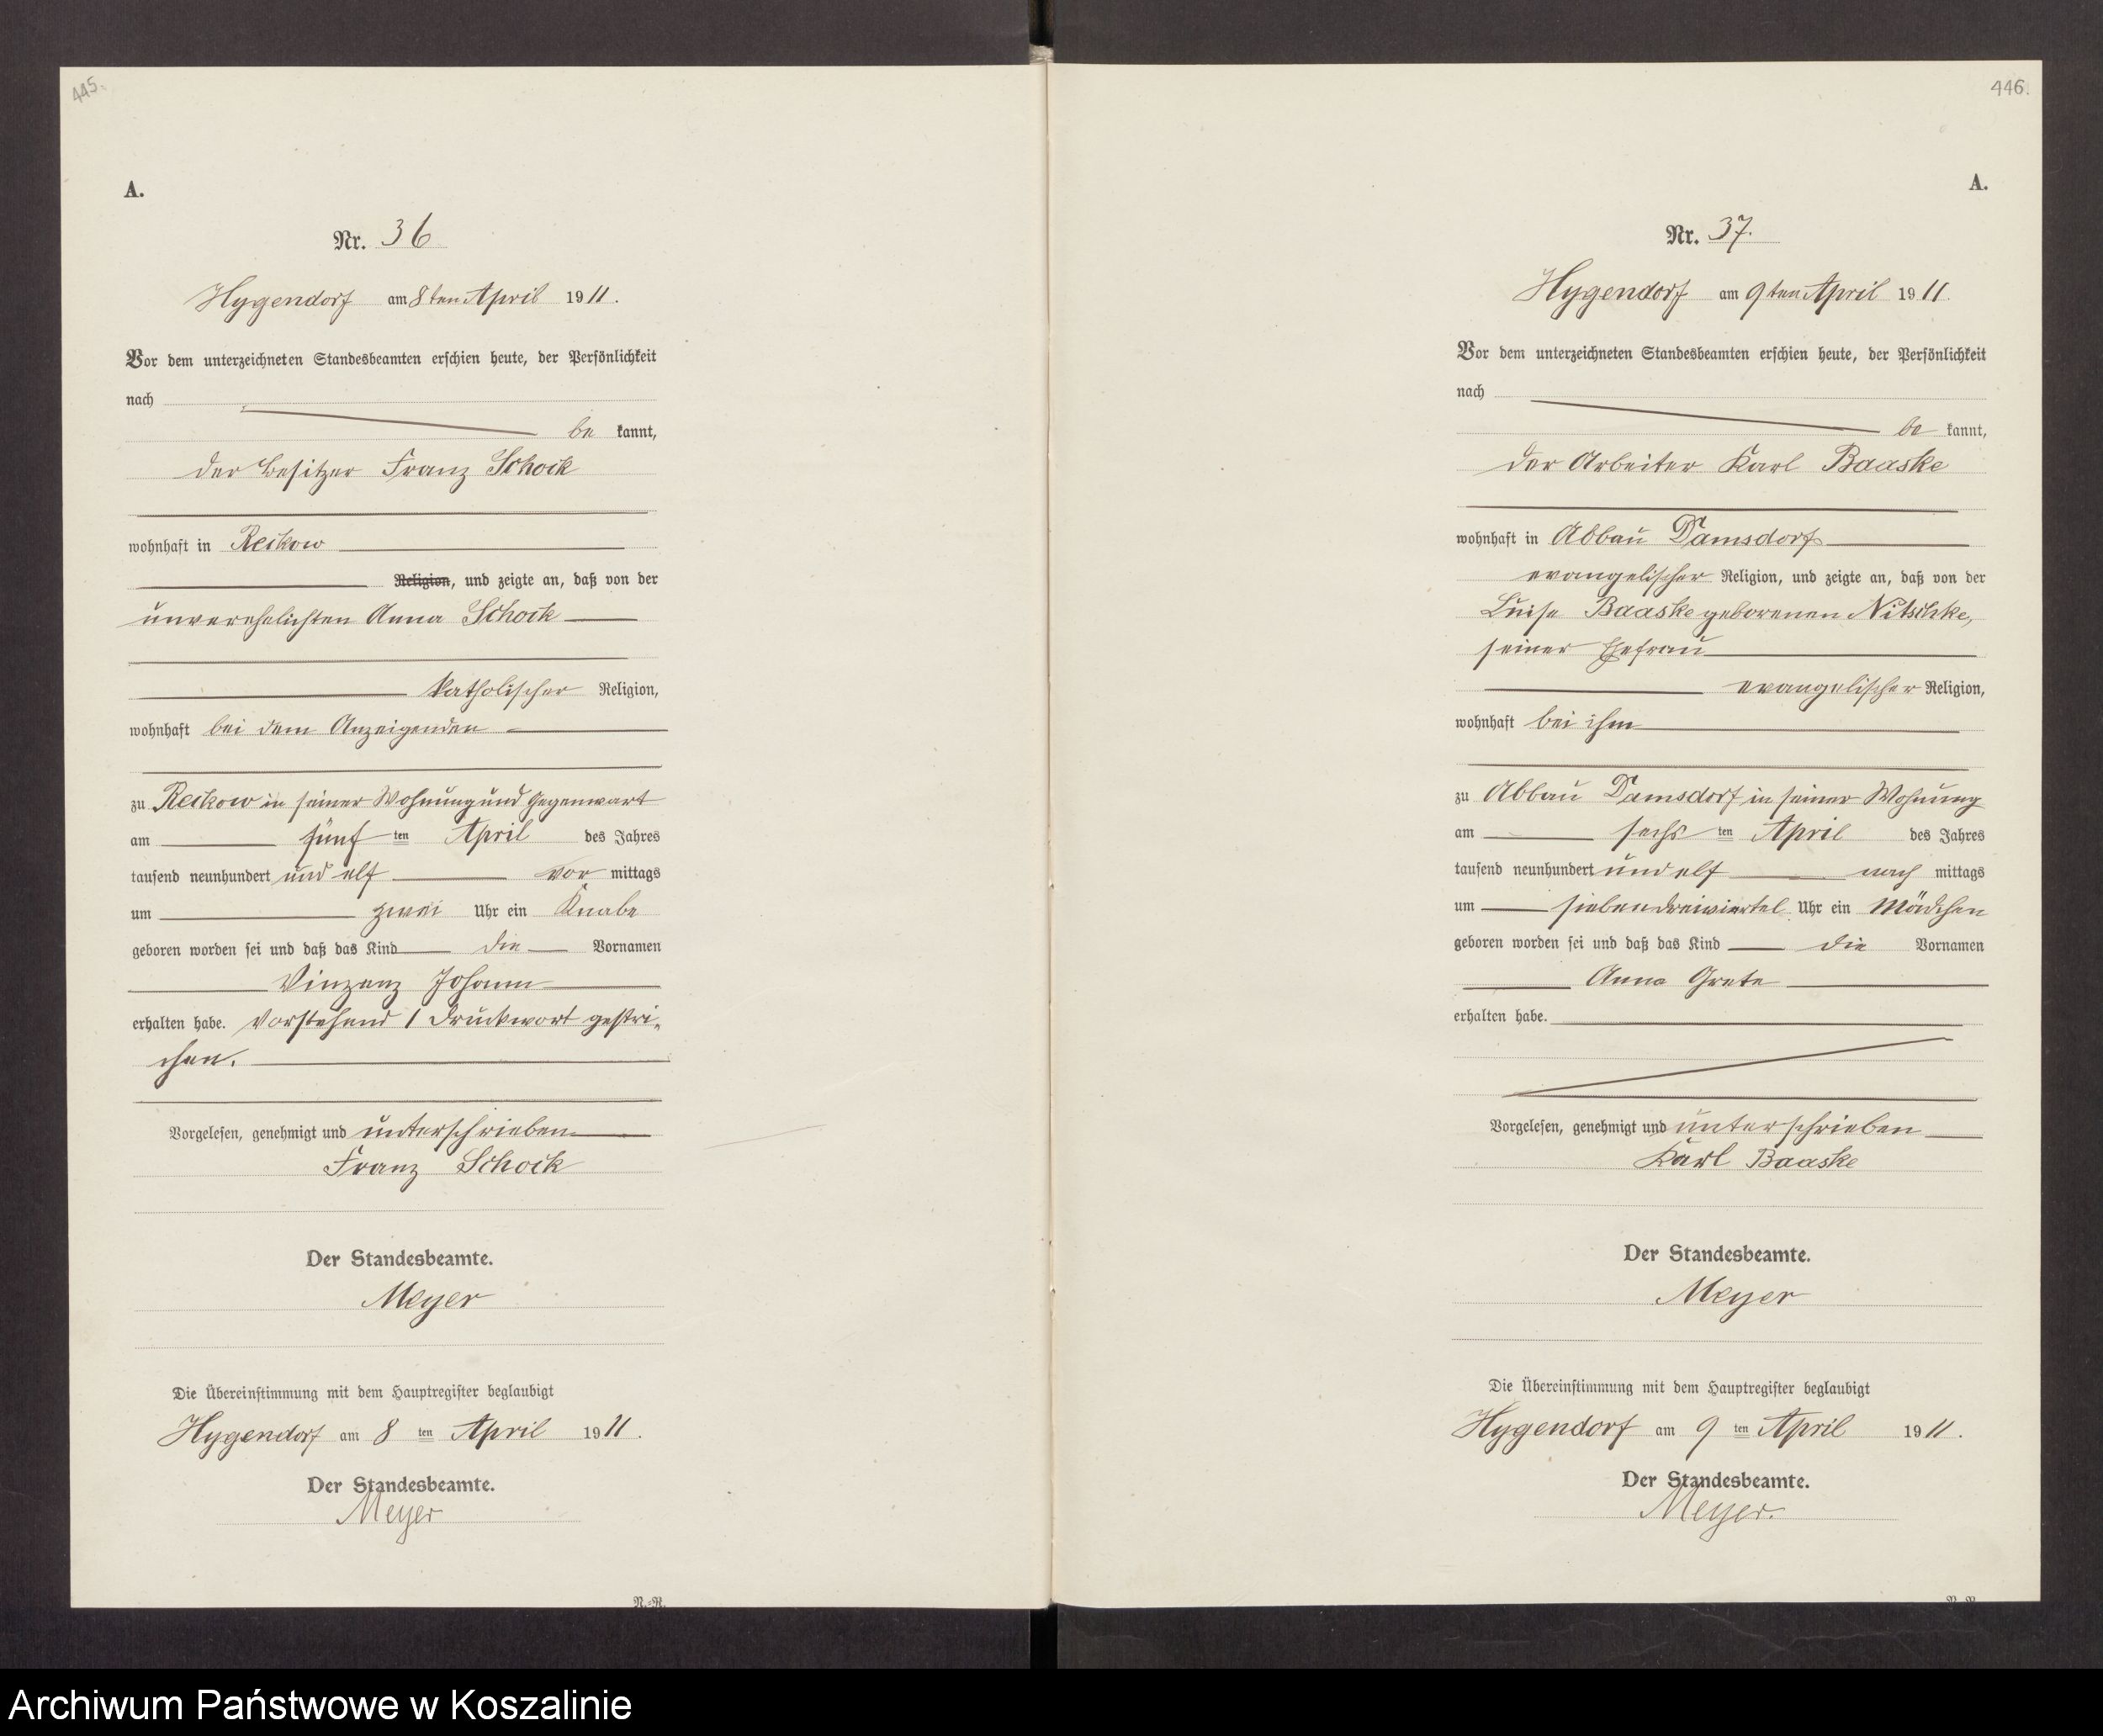 445.
A.
Nr. 36
Hygendorf am 8ten April 1911.
Vor dem unterzeichneten Standesbeamten erschien heute, der Persönlichkeit
nach
be kannt,
der Besitzer Franz Schock
wohnhaft in Reckow
Religion, und zeigte an, daß von der
unverehelichten Anna Schock
katholischer Religion,
wohnhaft bei dem Anzeigenden
zu Reckow in seiner Wohnung und Gegenwart
am fünf ten April des Jahres
tausend neunhundert und elf vor mittags
um zwei Uhr ein Knabe
geboren worden sei und daß das Kind die Vornamen
Vinzenz Johann
erhalten habe. Vorstehend 1 Druckwort gestri-
chen.
Vorgelesen, genehmigt und unterschrieben
Franz Schock
Der Standesbeamte.
Meyer
Die Übereinstimmung mit dem Hauptregister beglaubigt
Hygendorf am 8 ten April 1911.
Der Standesbeamte.
Meyer
N.-R.
446.
A.
Nr. 37.
Hygendorf am 9ten April 1911.
Vor dem unterzeichneten Standesbeamten erschien heute, der Persönlichkeit
nach
be kannt,
der Arbeiter Karl Baaske
wohnhaft in Abbau Damsdorf
evangelischer Religion, und zeigte an, daß von der
Luise Baaske geborenen Nitschke,
seiner Ehefrau
evangelischer Religion,
wohnhaft bei ihm
zu Abbau Damsdorf in seiner Wohnung
am sechs ten April des Jahres
tausend neunhundert und elf nach mittags
um siebendreiviertel Uhr ein Mädchen
geboren worden sei und daß das Kind die Vornamen
Anna Grete
erhalten habe.
Vorgelesen, genehmigt und unterschrieben
Karl Baaske
Der Standesbeamte.
Meyer
Die Übereinstimmung mit dem Hauptregister beglaubigt
Hygendorf am 9 ten April 1911.
Der Standesbeamte.
Meyer.
Archiwum Państwowe w Koszalinie